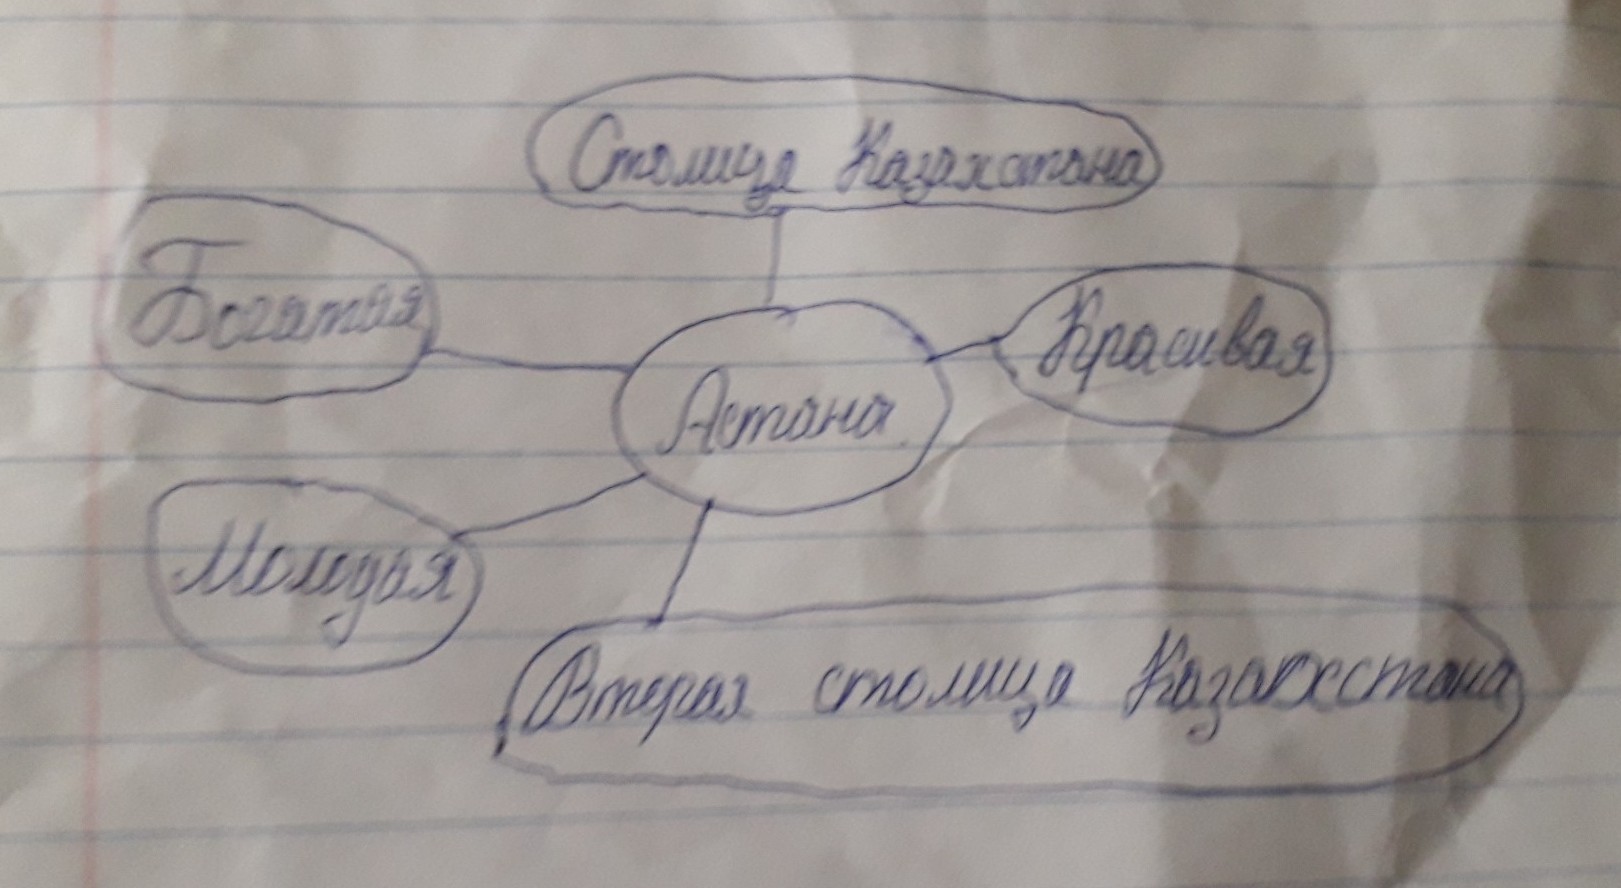 Столица Казахстана
Богатая
Красивая
Астана
Молодая
Вторая столица Казахстана